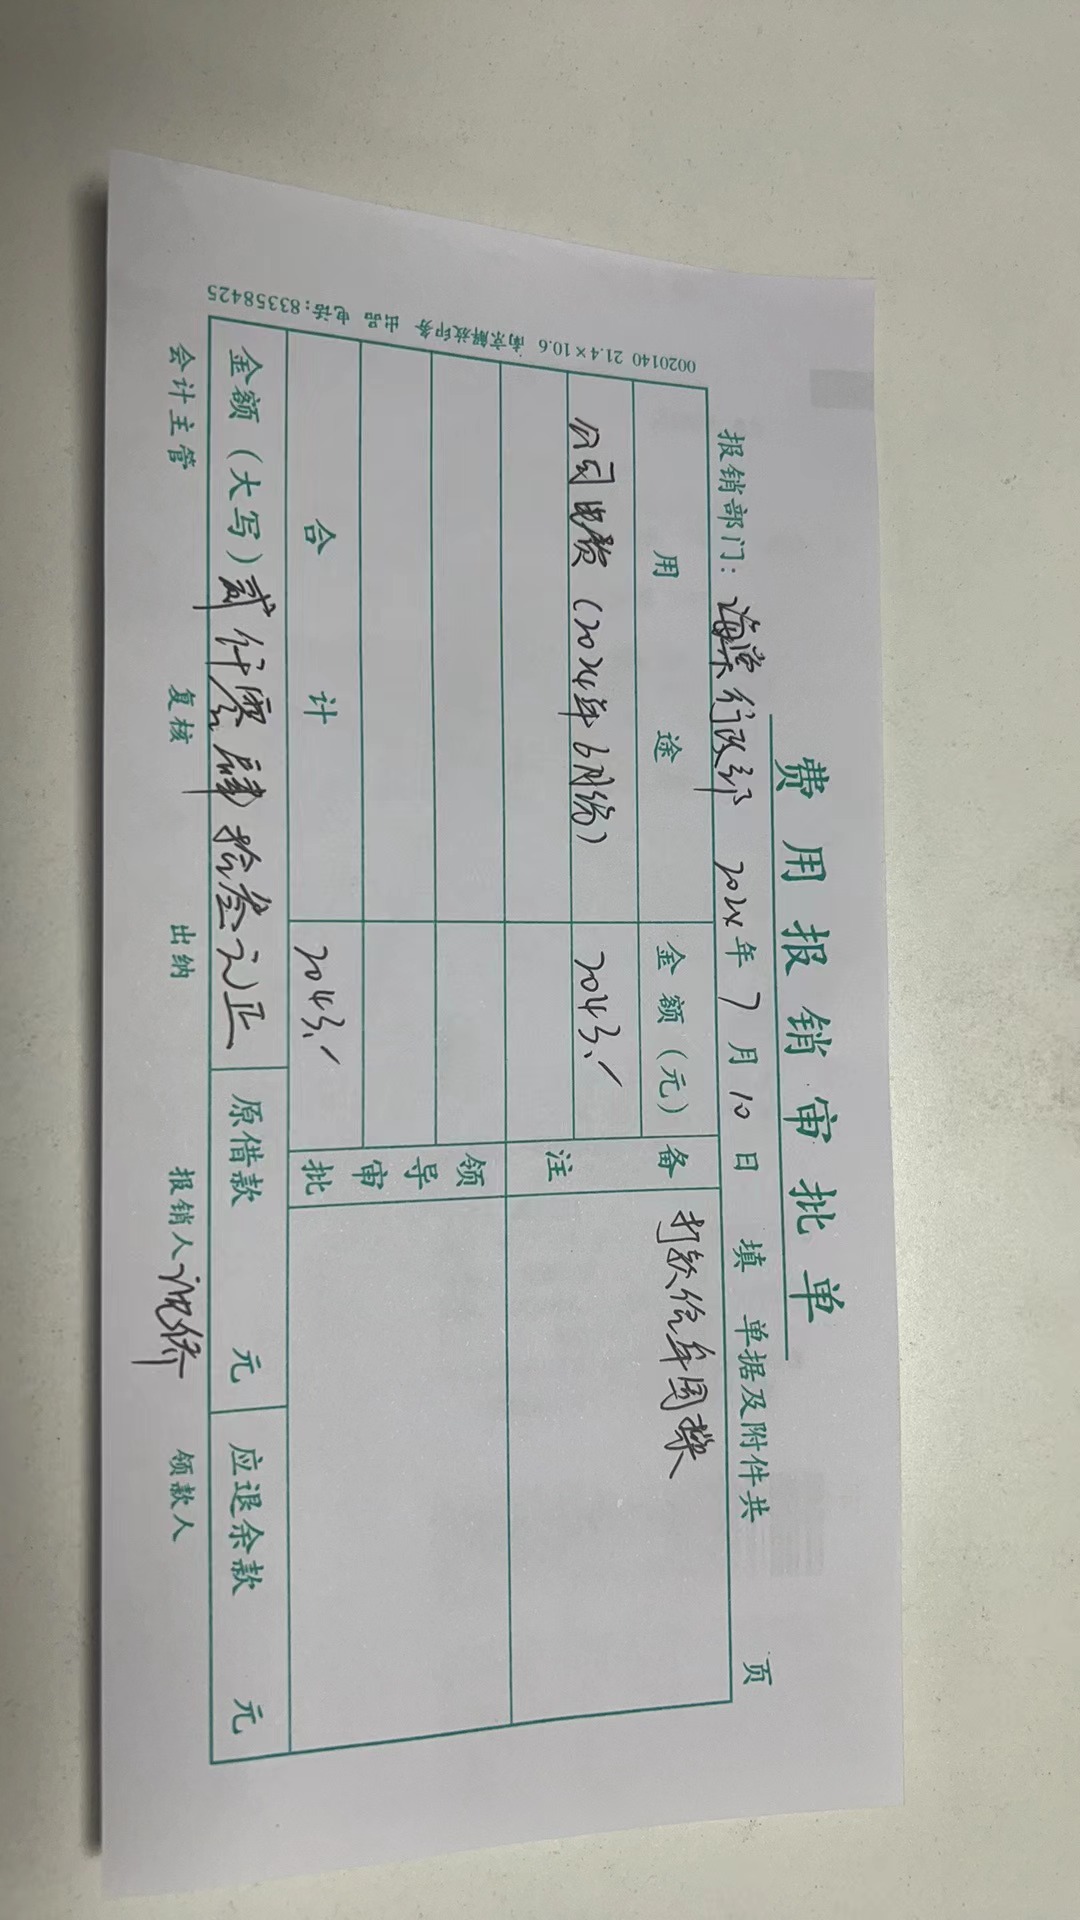 费用报销审批单
报销部门：海棠行政部 2024年7月10日填 单据及附件共 页
用途 金额（元） 备注
公司电费（2024年6月份） 2043.／ 打款给年国栋
合计 2043.／ 领导审批
金额（大写）贰仟零肆拾叁元正 原借款 元 应退余款 元
会计主管 复核 出纳 报销人 领款人
0020140 21.4×10.6 南京解放印务 出品 电话：83358425